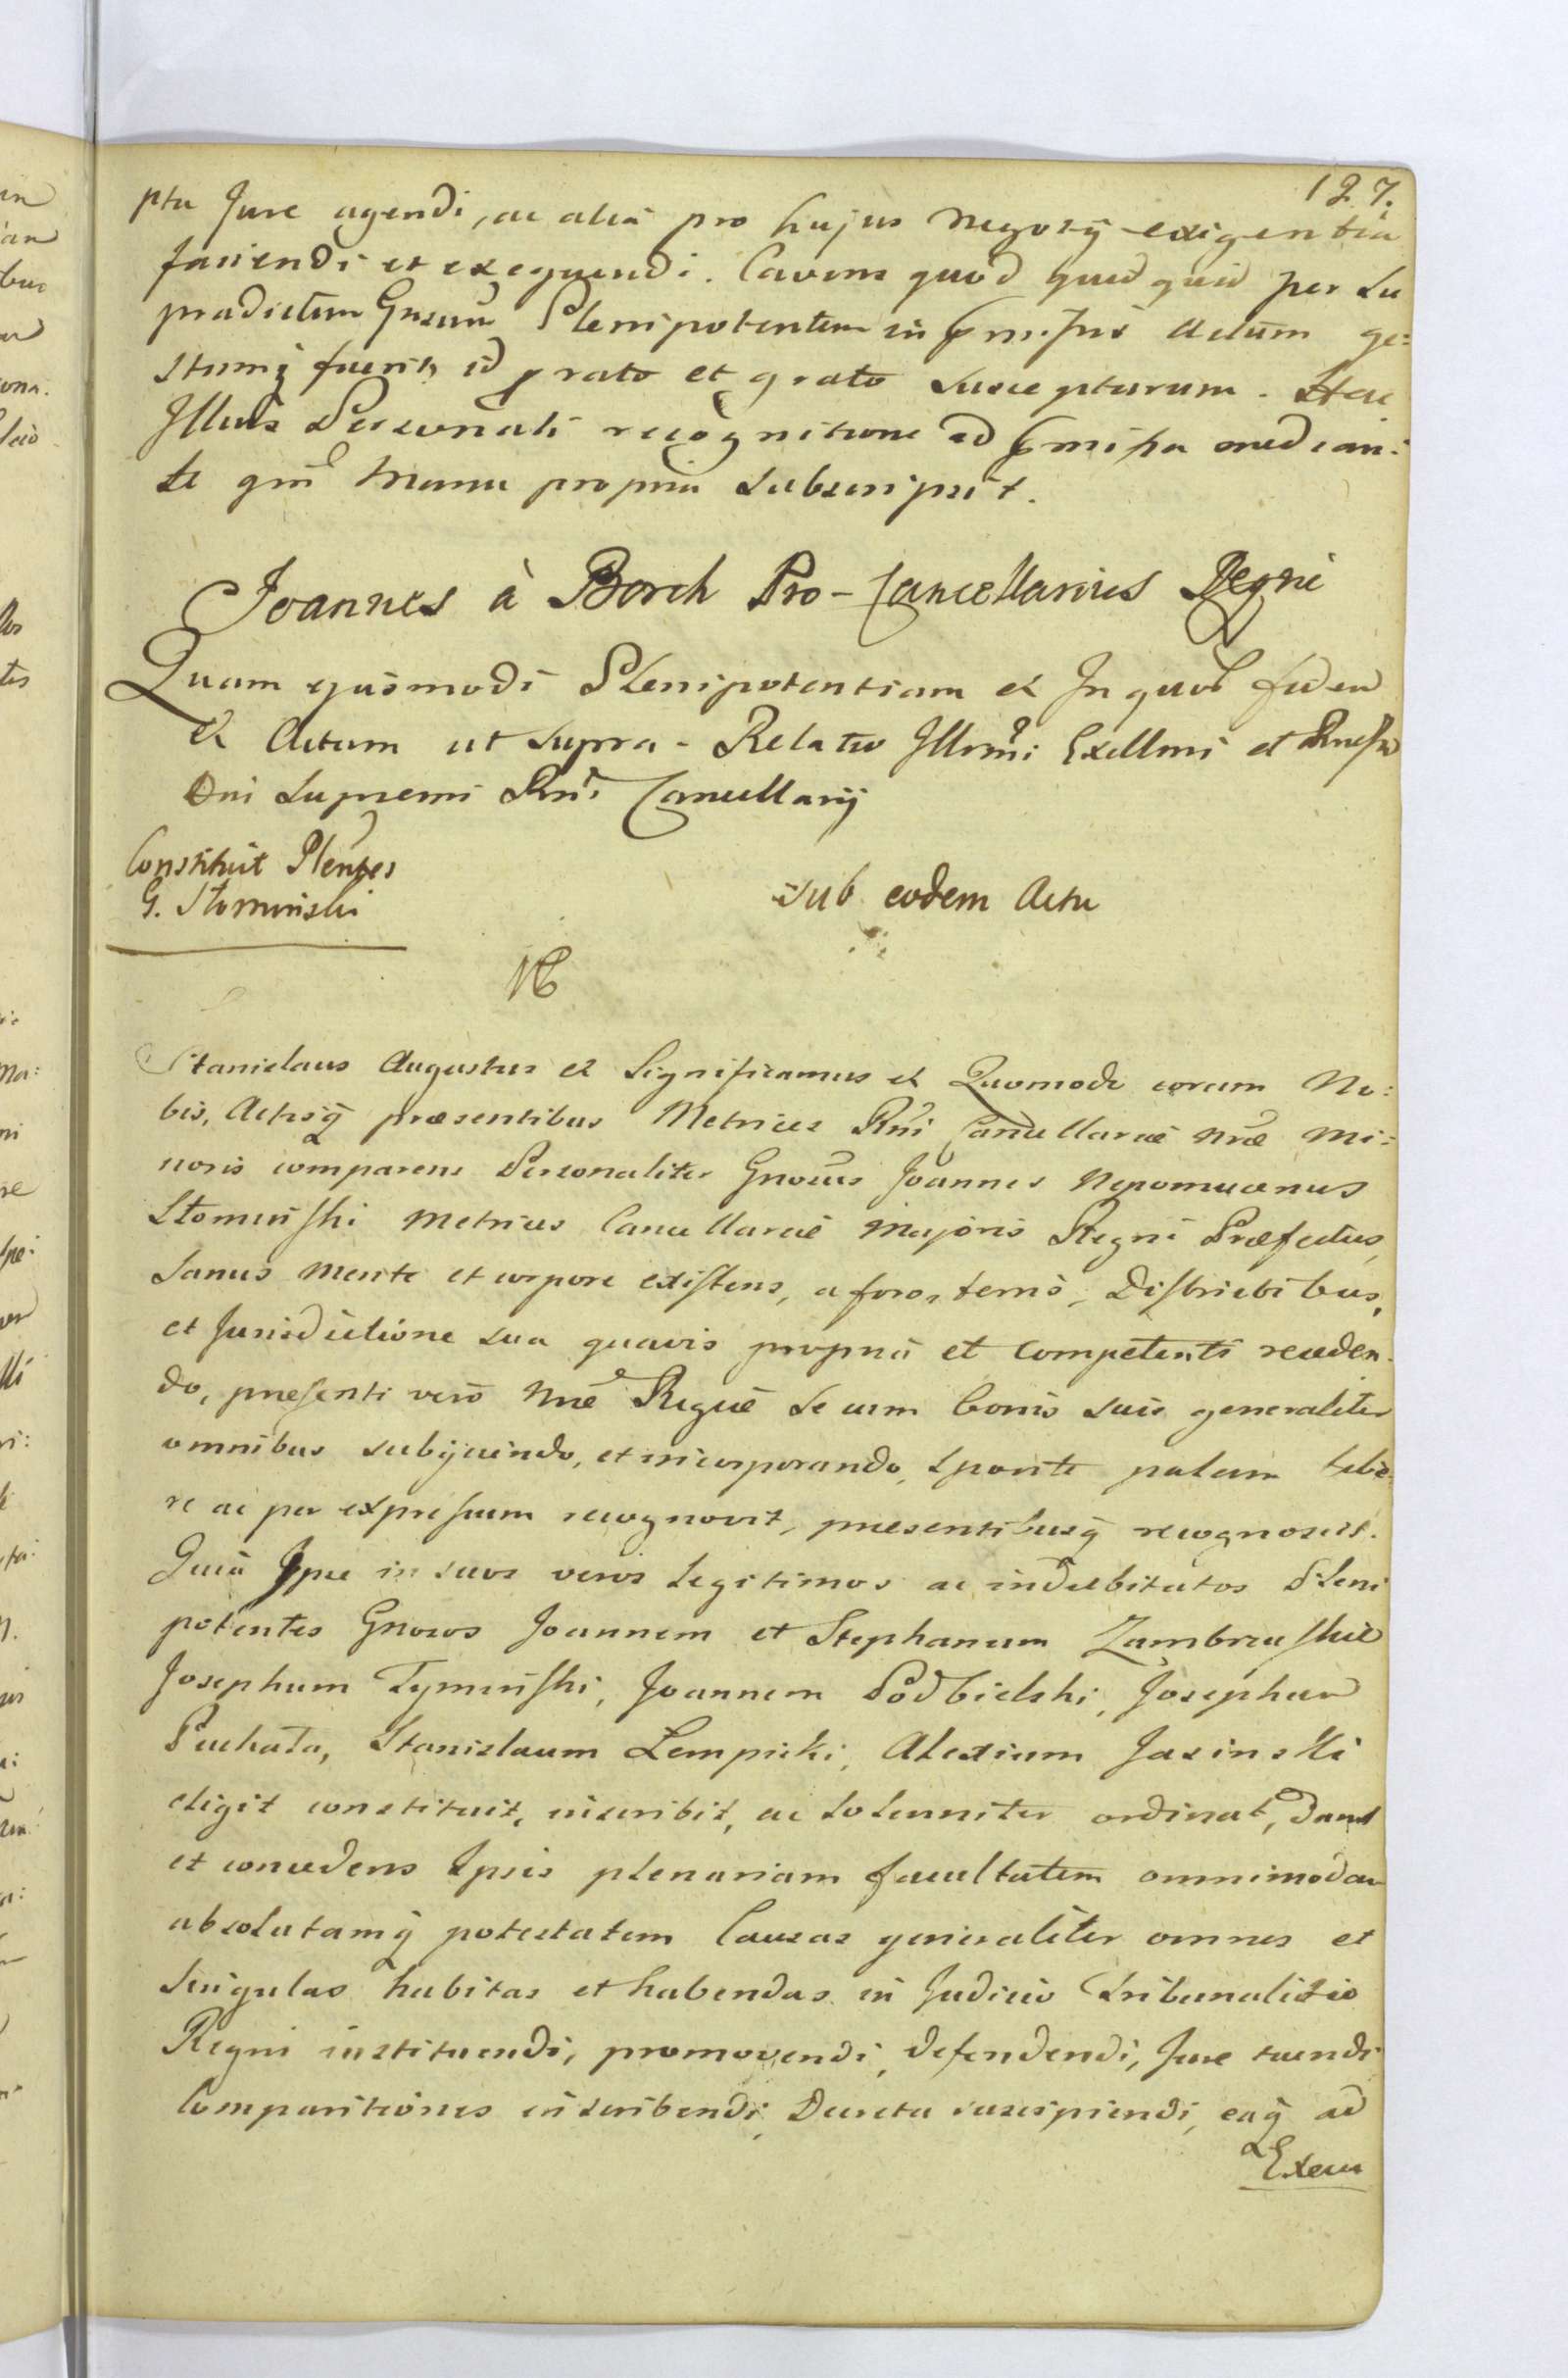 127.
ptu Jure agendi, ac alia pro hujus Negotij exigentia
faciendi et exequendi. Cavens quod quid quid per Su
pradictum Gnsum Plenipotentem in Pmissis actum ge:
stumq fuerit, id prato et grato suscepturum. Hac
Illius Personali recognitione ad Pmissa median:
te qm Manu propria subscripsit.
Joannes à Borch Pro-Cancellarius Regni
Quam ejusmodi Plenipotentiam et In quor fidem
et Actum ut supra - Relatio Illrmi Excllmi et
Dni Supremi Rni Cancellarij
Constituit Plentes
G. Słomiński
sub eodem Actu
Stanislaus Augustus et Significamus et Quomodo coram No:
bis, Actisq præsentibus Metrices Rni Cancellariæ Nræ Mi:
noris comparens Personaliter Gnosus Joannes Nepomucenus
Słomiński Metrices Cancellariæ Majoris Regni Præfectus,
Sanus Mente et corpore existens, a foro, terris, Districtibus,
et Jurisdictione sua quavis propria et Competenti receden:
do, præsenti vero Nræ Regiæ se cum bonis suis generaliter
omnibus subijciendo, et incorporando, sponte palam libe:
re ac per expressum recognovit, præsentibusq recognoscit.
Quia Ipse in suos veros Legitimos ac indubitatos Pleni
potentes Gnosos Joannem et Stephanum Zambrzuskie
Josephum Tyminski, Joannem Podbielski, Josephum
Puchała, Stanislaum Lempicki, Alexium Jasinski
eligit constituit, inscribit, ac solenniter ordinat, Dans
et concedens Ipsis plenariam facultatem omnimodam
absolutamq potestatem Causas generaliter omnes et
singulas habitas et habendas in Judicio Tribunalitio
Regni instituendi, promovendi, defendendi, Jure tuendi
Comparitiones inscribendi, Decreta suscipiendi, eaq ad
Execu